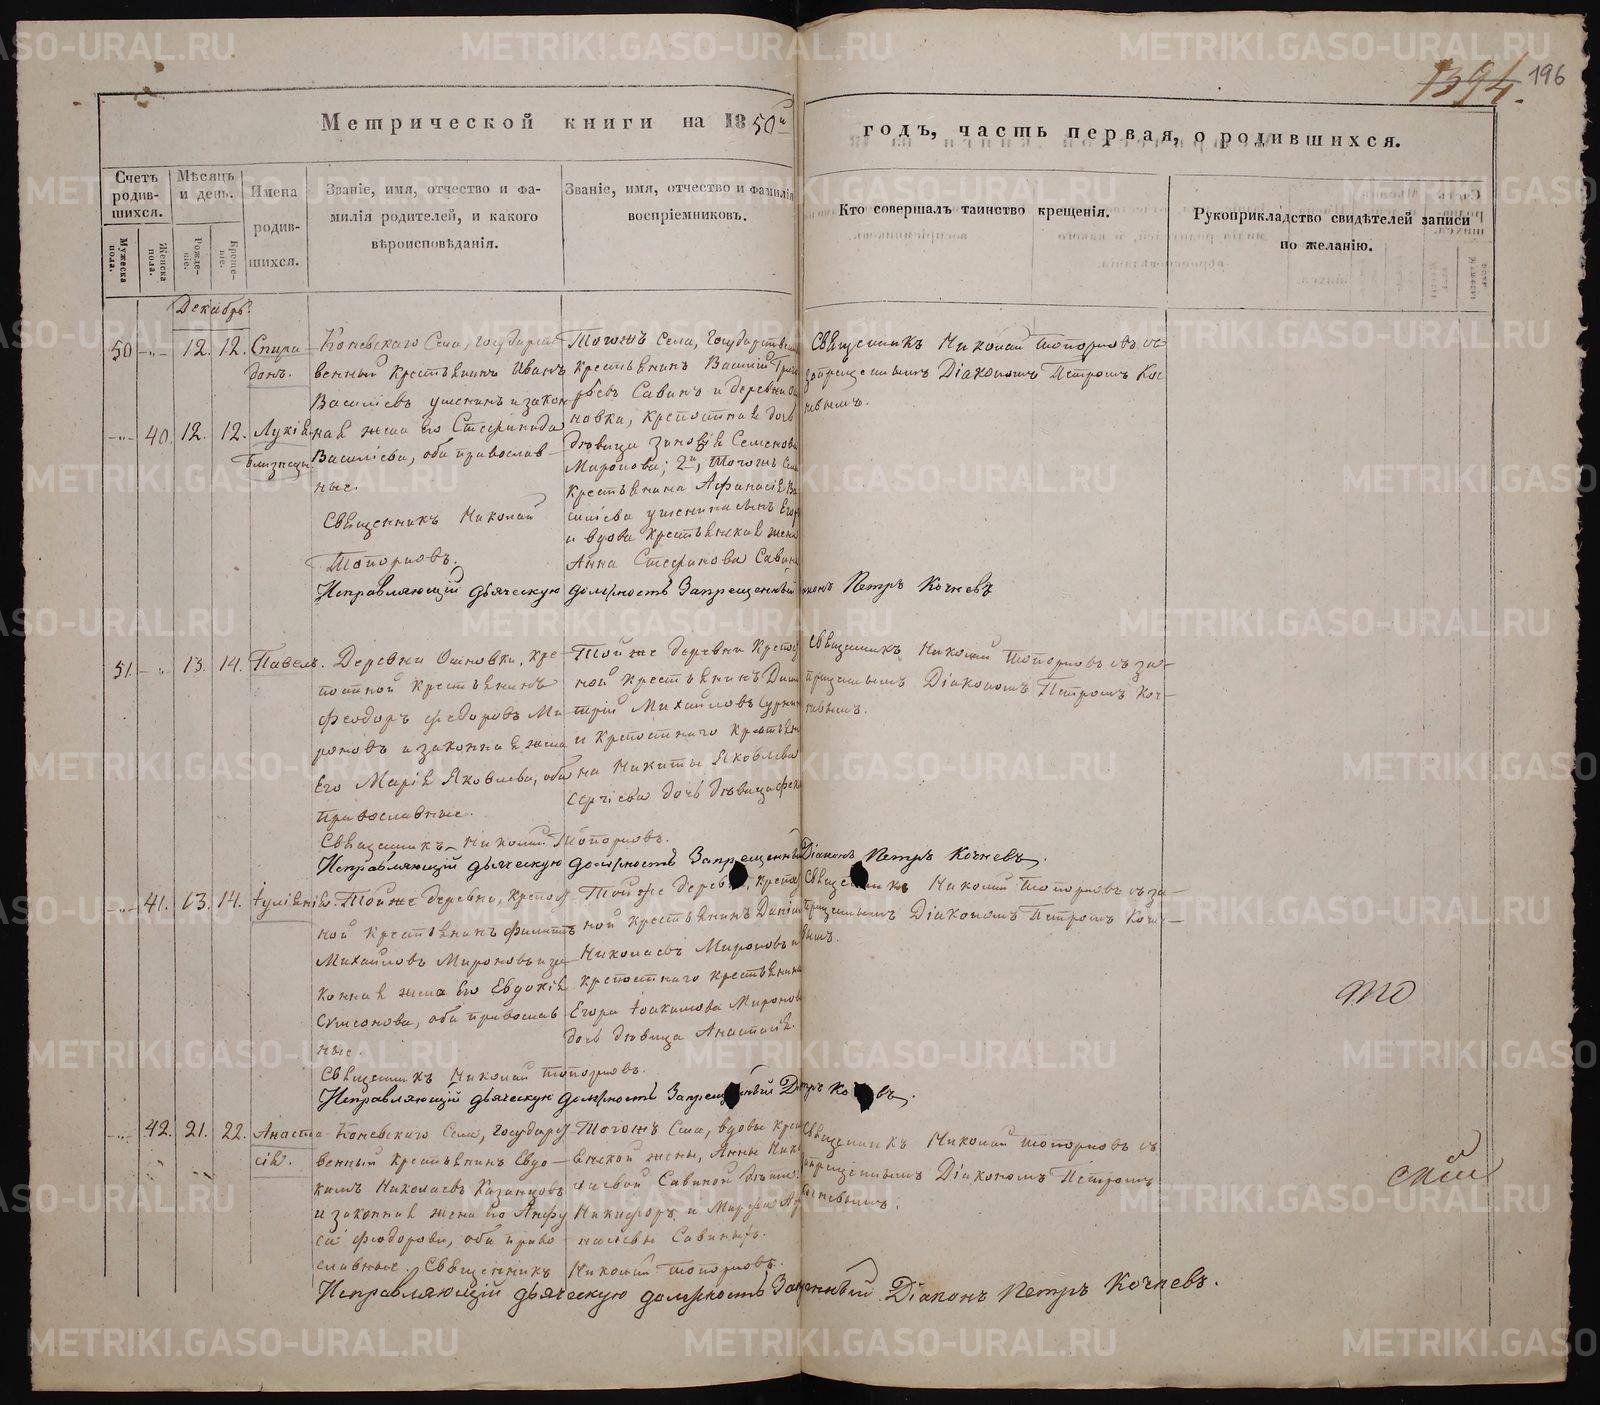 1394. 196
Метрической книги на 1850й годъ, часть первая, о родившихся.
Счетъ родившихся.
Мужеска пола.
Женска пола.
Мѣсяцъ и день.
Рожденіе.
Крещеніе.
Имена родившихся.
Званіе, имя, отчество и фамилія родителей, и какого вѣроисповѣданія.
Званіе, имя, отчество и фамилія воспріемниковъ.
Кто совершалъ таинство крещенія.
Рукоприкладство свидѣтелей записи по желанію.
Декабрь.
50 12. 12. Спиридонъ.
40. 12. 12. Лукія.
Близнецы.
Коневскаго Села, государст
венный крестьянинъ Иванъ
Василіевъ
и закон
ная жена его Стефанида
Василіева, оба православ
ные.
Священникъ Николай
Топорковъ.
Тогожъ села, государствен
крестьянинъ Василій Григ
рьевъ Савинъ и деревни Ош
новки, крепостная дочь
дѣвица Зиновія Семенова
Миронова; 2й, Тогожъ Села
крестьянина Афанасія Ва
силіева сынъ Егор
и вдова крестьянская жена
Анна Стефанова Савина
Священникъ Николай Топорковъ съ
запрещеннымъ Діакономъ Петромъ Коч
невымъ.
Исправляющій дьяческую должность Запрещенный Петръ Кочневъ
51 13. 14. Павелъ.
Деревни Ошновки, кре
постной крестьянинъ
Феодоръ Федоровъ Ми
роновъ и законная жена
его Марія Яковлева, оба
православные.
Священникъ Николай Топорковъ.
Той же деревни Крепост
ной крестьянинъ Дими
трій Михайловъ
и крепостнаго крестьян
на Никиты Яковлева
Сергіева дочь дѣвица Фек
Священникъ Николай Топорковъ съ за
прещеннымъ Діакономъ Петромъ Коч
невымъ.
Исправляющій дьяческую должность Запрещенный Діаконъ Петръ Кочневъ.
41. 13. 14. Іуліанія.
Той же деревни, крепост
ной крестьянинъ Филиппъ
Михайловъ Мироновъ и за
конная жена его Евдокія
Симеонова, оба православ
ные.
Священникъ Николай Топорковъ.
Той же деревни, крепост
ной крестьянинъ Даніилъ
Николаевъ Мироновъ и
крепостнаго крестьянина
Егора Іоакимова Миронова
дочь дѣвица Анастасія.
Священникъ Николай Топорковъ съ за
прещеннымъ Діакономъ Петромъ Кочне
вымъ.
Исправляющій дьяческую должность
42. 21. 22. Анаста
сія.
Коневскаго Села, государст
венный крестьянинъ Евдо
кимъ Николаевъ Казанцовъ
и законная жена его Анфу
са Феодорова, оба право
славные. Священникъ Николай Топорковъ.
Тогожъ Села, вдовы крест
янской жены, Анны Нико
лаевой Савиной дѣти
Никифоръ и Марфа
Савины.
Священникъ Николай Топорковъ съ
запрещеннымъ Діакономъ Петромъ
Кочневымъ.
Исправляющій дьяческую должность Запрещенный Діаконъ Петръ Кочневъ.
METRIKI.GASO-URAL.RU